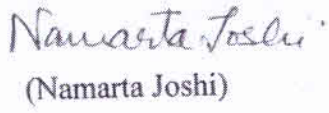 Namarta Joshi
(Namarta Joshi)